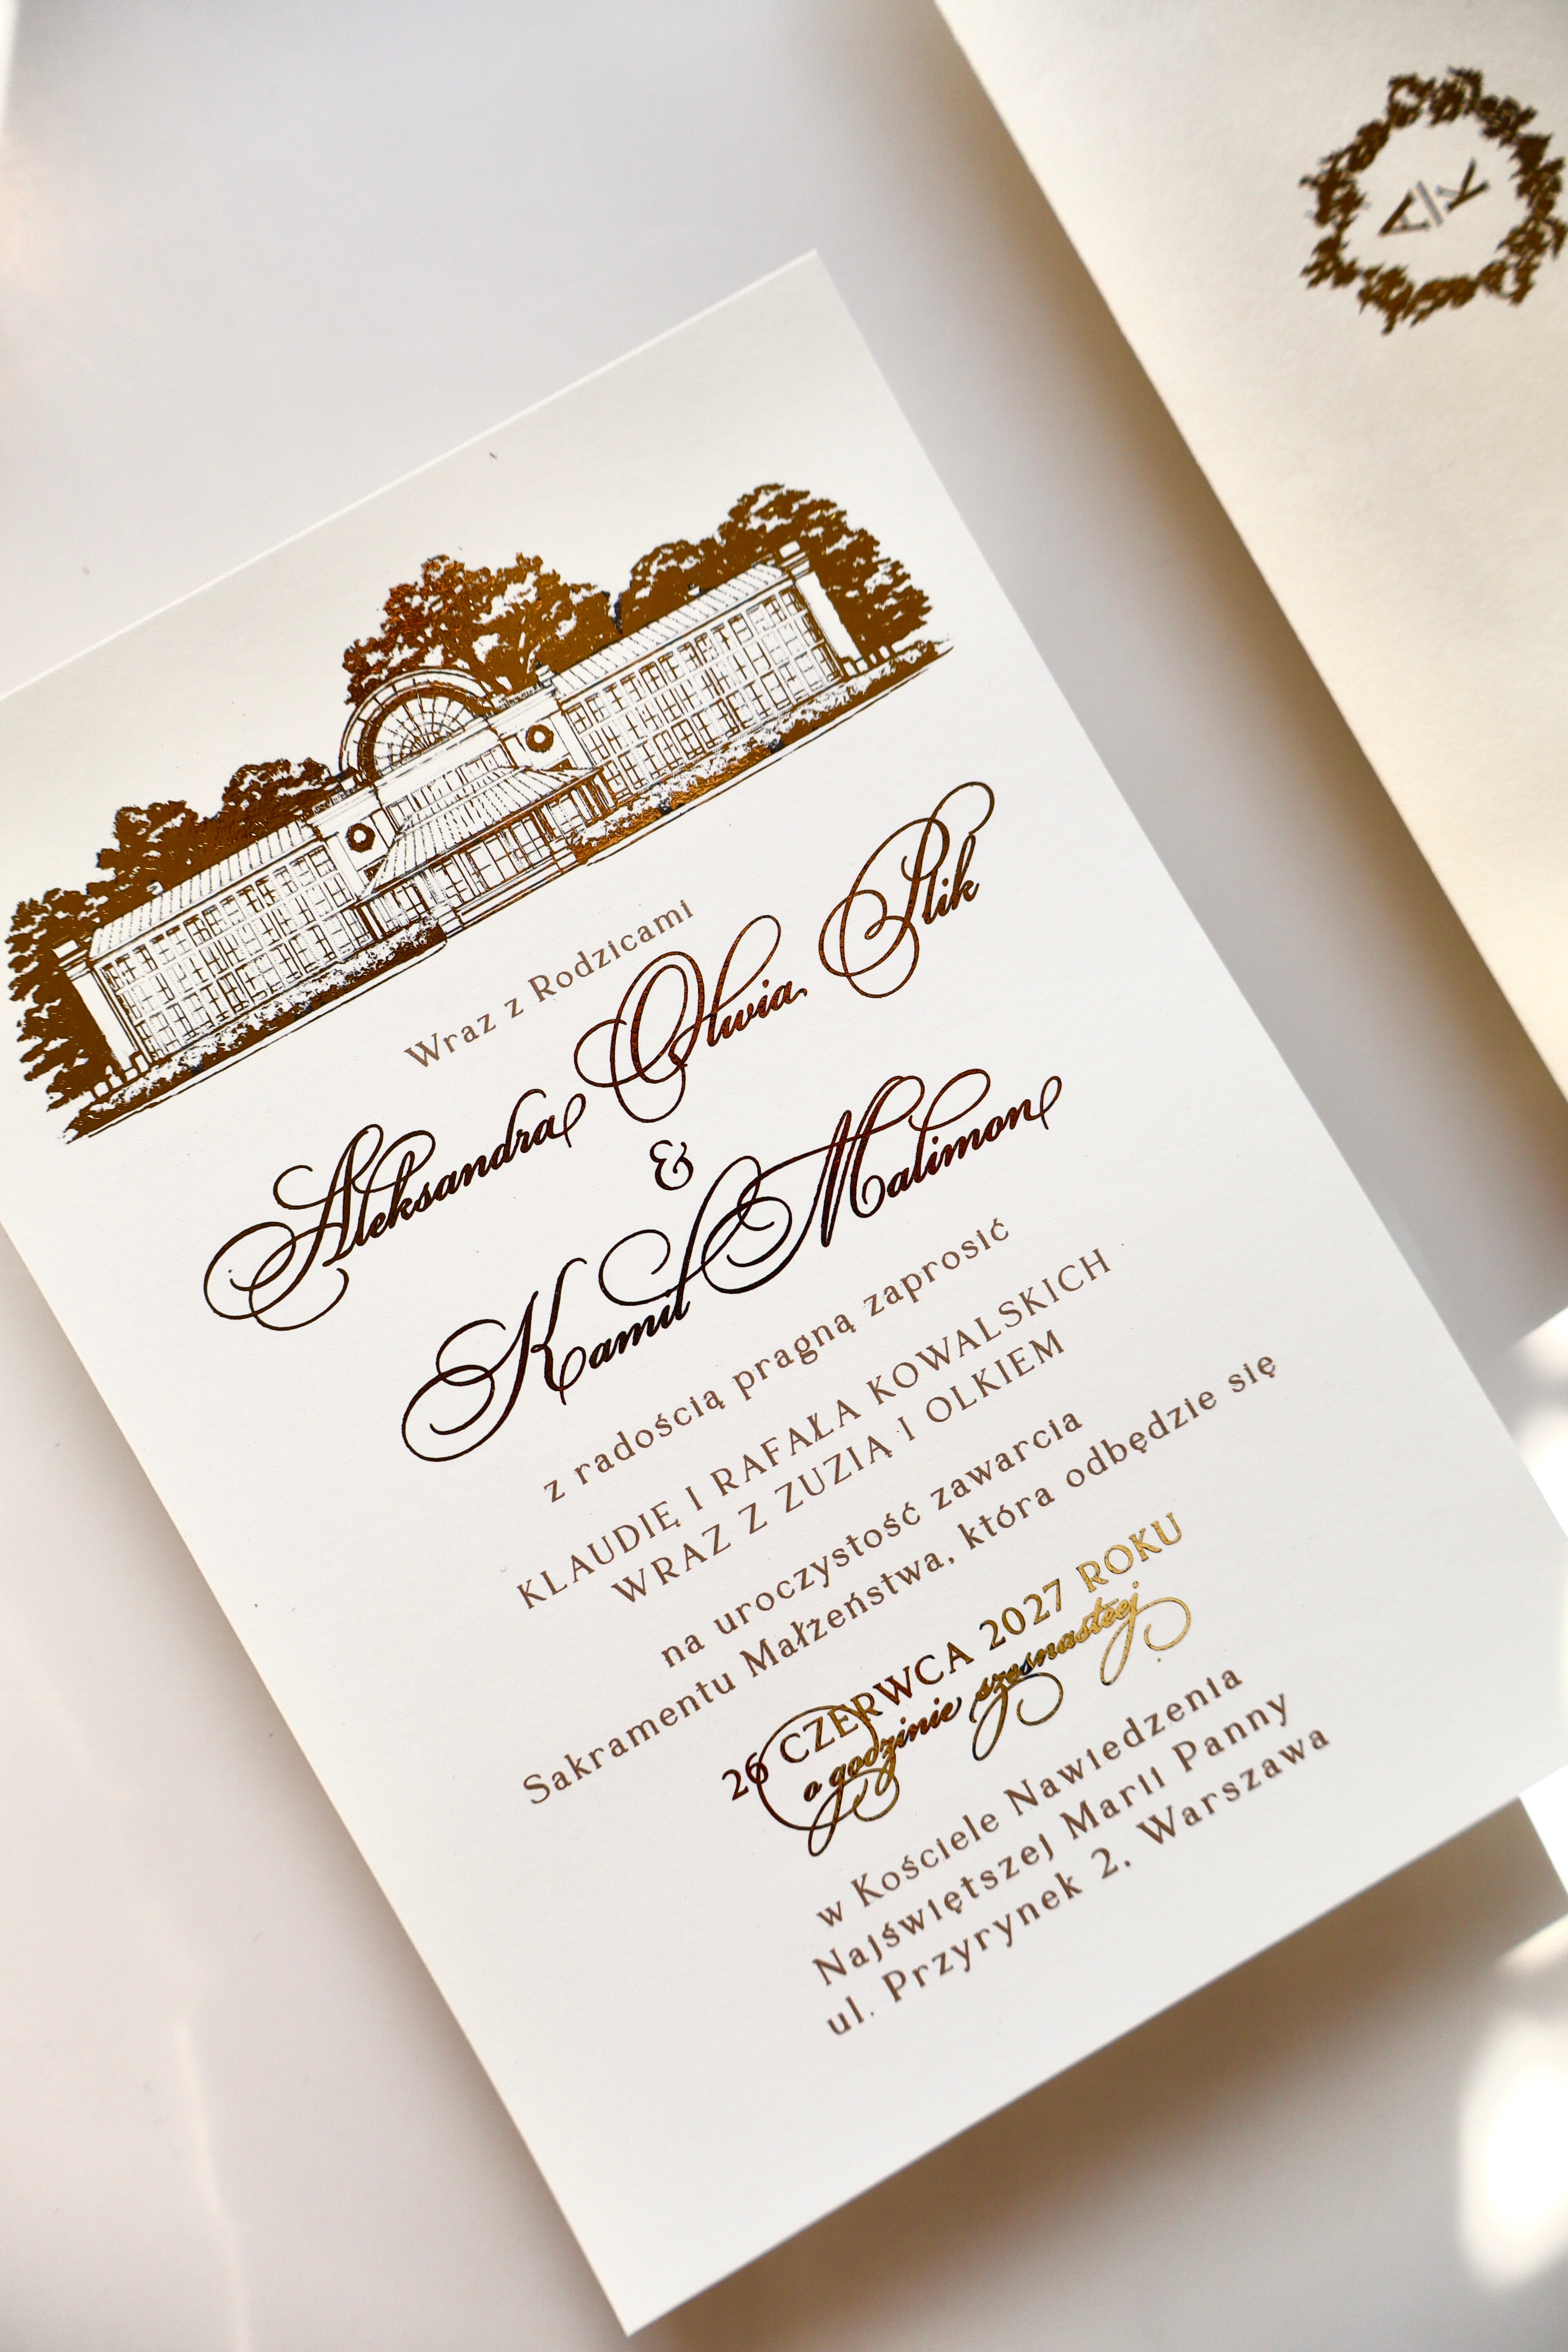 Wraz z Rodzicami
Aleksandra Oliwia Plik
&
Kamil Malimon
z radością pragną zaprosić
KLAUDIĘ I RAFAŁA KOWALSKICH
WRAZ Z ZUZIĄ I OLKIEM
na uroczystość zawarcia
Sakramentu Małżeństwa, która odbędzie się
26 CZERWCA 2027 ROKU
o godzinie szesnastej
w Kościele Nawiedzenia
Najświętszej Marii Panny
ul. Przyrynek 2, Warszawa
A|K